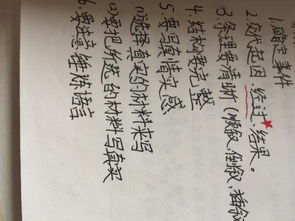 1.确定事件
2.交代起因、经过、结果。
3.条理要清晰(顺叙、倒叙、插叙
4.结构要完整
5.要写真情实感
(1)选择真实的材料来写
(2)要把所选的材料写真实
6.要注意锤炼语言